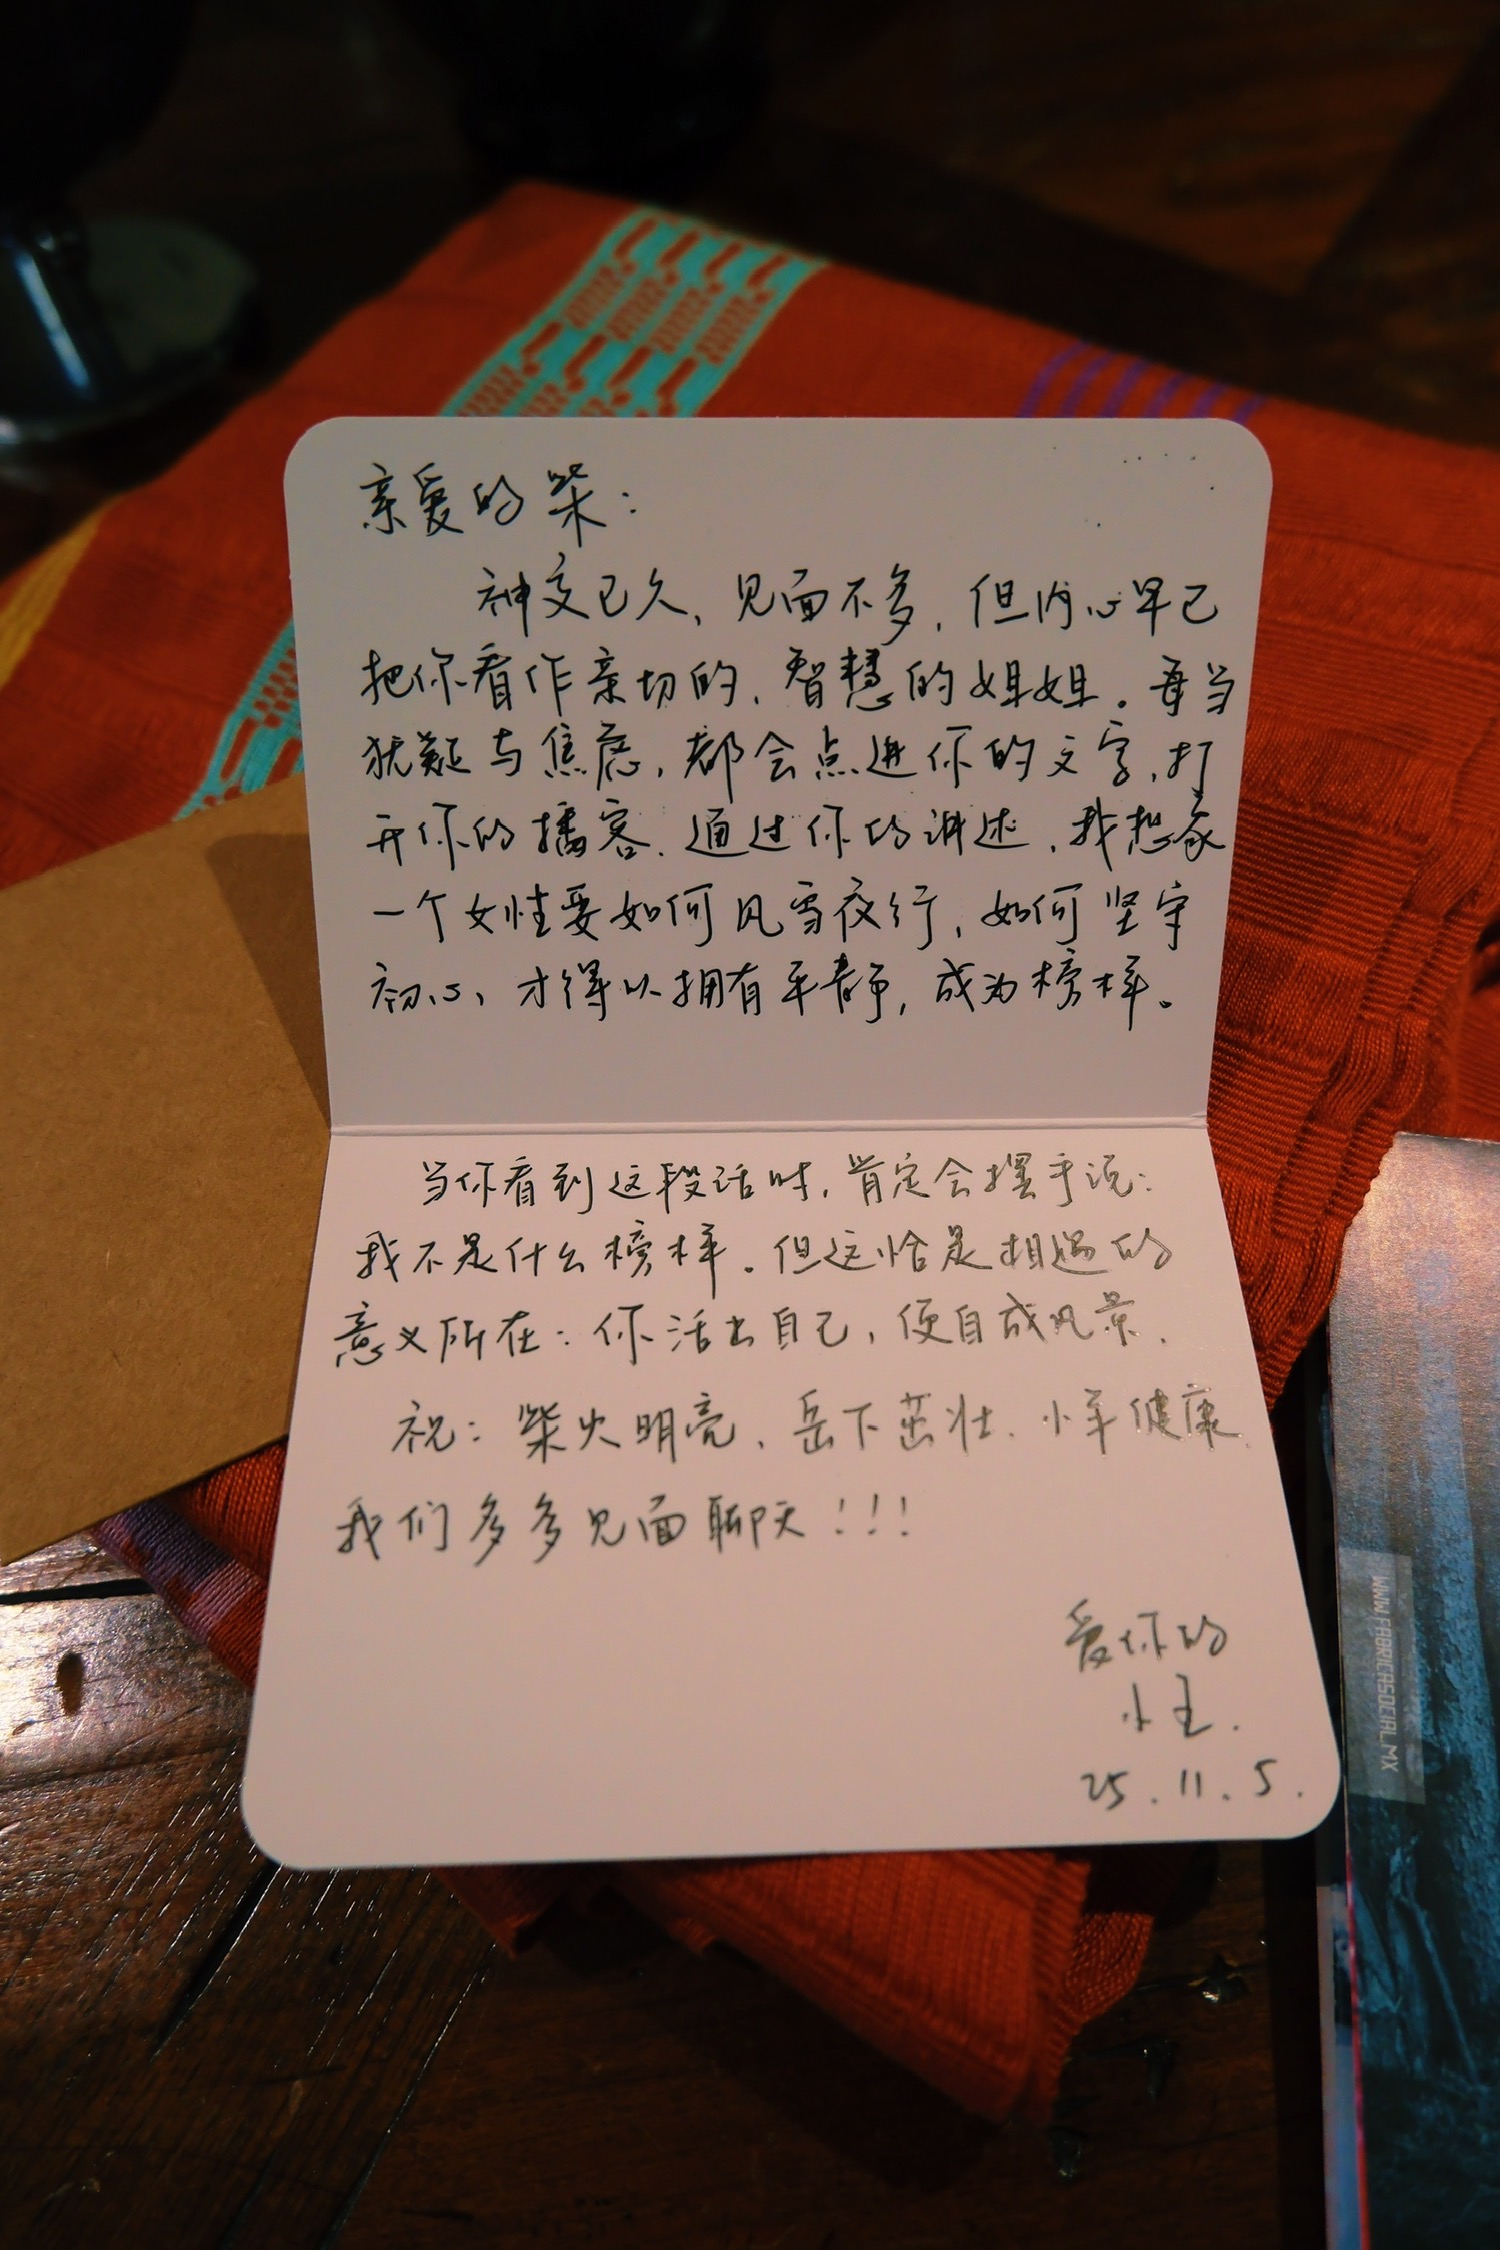 亲爱的柴：
神交已久，见面不多，但内心早已
把你看作亲切的、智慧的姐姐。每当
犹疑与焦虑，都会点进你的文字，打
开你的播客．通过你的讲述，我想象
一个女性要如何风雪夜行，如何坚守
初心，才得以拥有平静，成为榜样。
当你看到这段话时，肯定会摆手说：
我不是什么榜样。但这恰是相遇的
意义所在：你活出自己，便自成风景．
祝：柴火明亮、岳下茁壮．小羊健康
我们多多见面聊天！！！
爱你的
小王．
25．11．5．
WWW.FABRICASOCIAL.MX